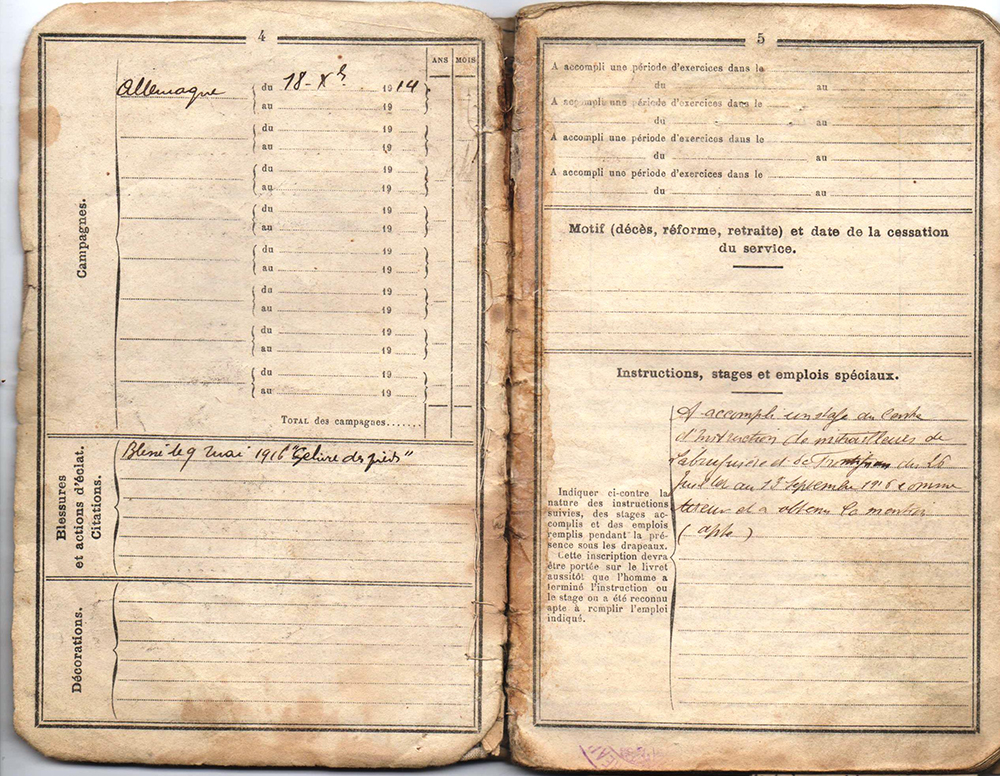 4
ANS MOIS
Campagnes.
Allemagne du 18 - Xb 1914
au 19
du 19
au 19
du 19
au 19
du 19
au 19
du 19
au 19
du 19
au 19
du 19
au 19
du 19
au 19
TOTAL des campagnes.......
Blessures
et actions d'éclat.
Citations.
Blessé le 9 mai 1916 "Gelure des pieds"
Décorations.
5
A accompli une période d'exercices dans le
du au
A accompli une période d'exercices dans le
du au
A accompli une période d'exercices dans le
du au
A accompli une période d'exercices dans le
du au
Motif (décès, réforme, retraite) et date de la cessation
du service.
Instructions, stages et emplois spéciaux.
Indiquer ci-contre la
nature des instructions
suivies, des stages ac-
complis et des emplois
remplis pendant la pré-
sence sous les drapeaux.
Cette inscription devra
être portée sur le livret
aussitôt que l'homme a
terminé l'instruction ou
le stage ou a été reconnu
apte à remplir l'emploi
indiqué.
A accompli un stage au Centre
d'Instruction de mitrailleuses de
et de du 26
Juillet au Septembre 1916 comme
tireur et a obtenu la mention
( apte )